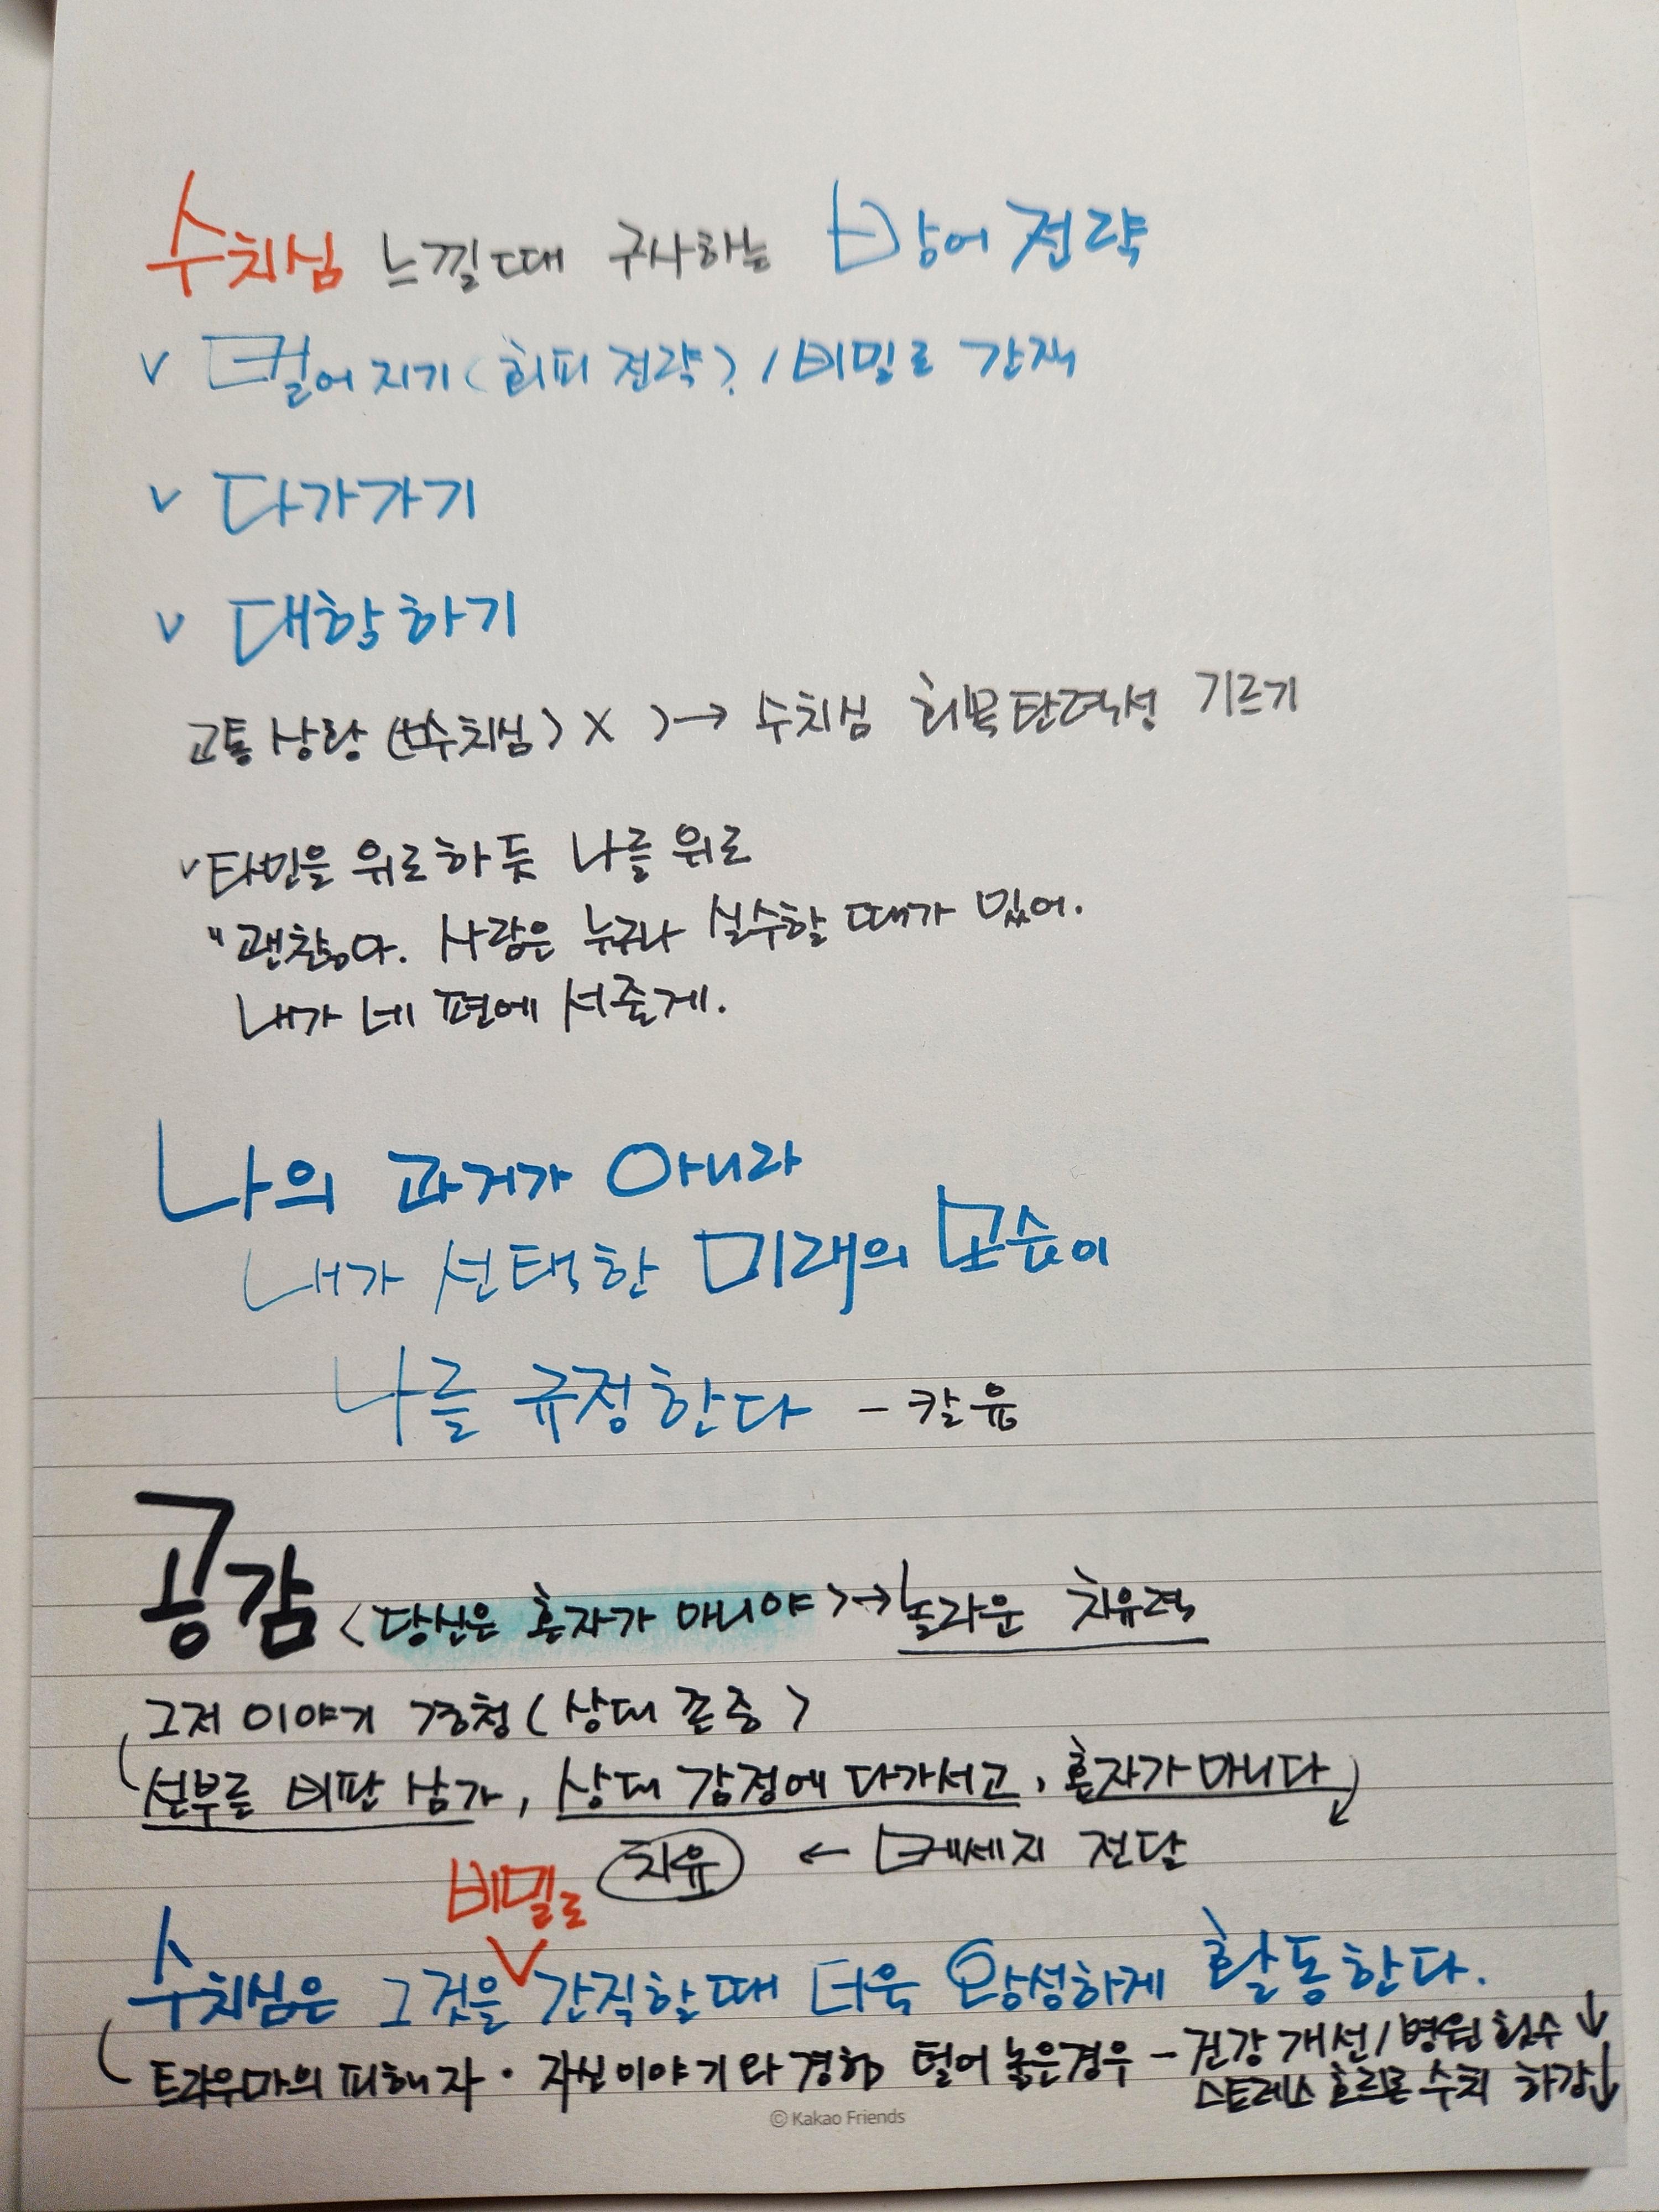 수치심 느낄때 구사하는 방어 전략
v 멀어지기(회피 전략) / 비밀로 간직
v 다가가기
v 대항하기
고통 상황 (수치심) X → 수치심 회복탄력성 기르기
v 타인을 위로하듯 나를 위로
"괜찮아. 사람은 누구나 실수할 때가 있어.
내가 네 편에 서줄게.
나의 과거가 아니라
내가 선택한 미래의 모습이
나를 규정한다 - 칼 융
공감 (당신은 혼자가 아니야) → 놀라운 치유력
그저 이야기 경청 (상대 존중)
섣부른 비판 삼가, 상대 감정에 다가서고, 혼자가 아니다
치유 ← 메세지 전달
수치심은 그것을 비밀로 간직할때 더욱 왕성하게 활동한다.
트라우마의 피해자 · 자신이야기와 경험 털어 놓은경우 - 건강 개선 / 병원 횟수 ↓
스트레스 호르몬 수치 하강↓
© Kakao Friends